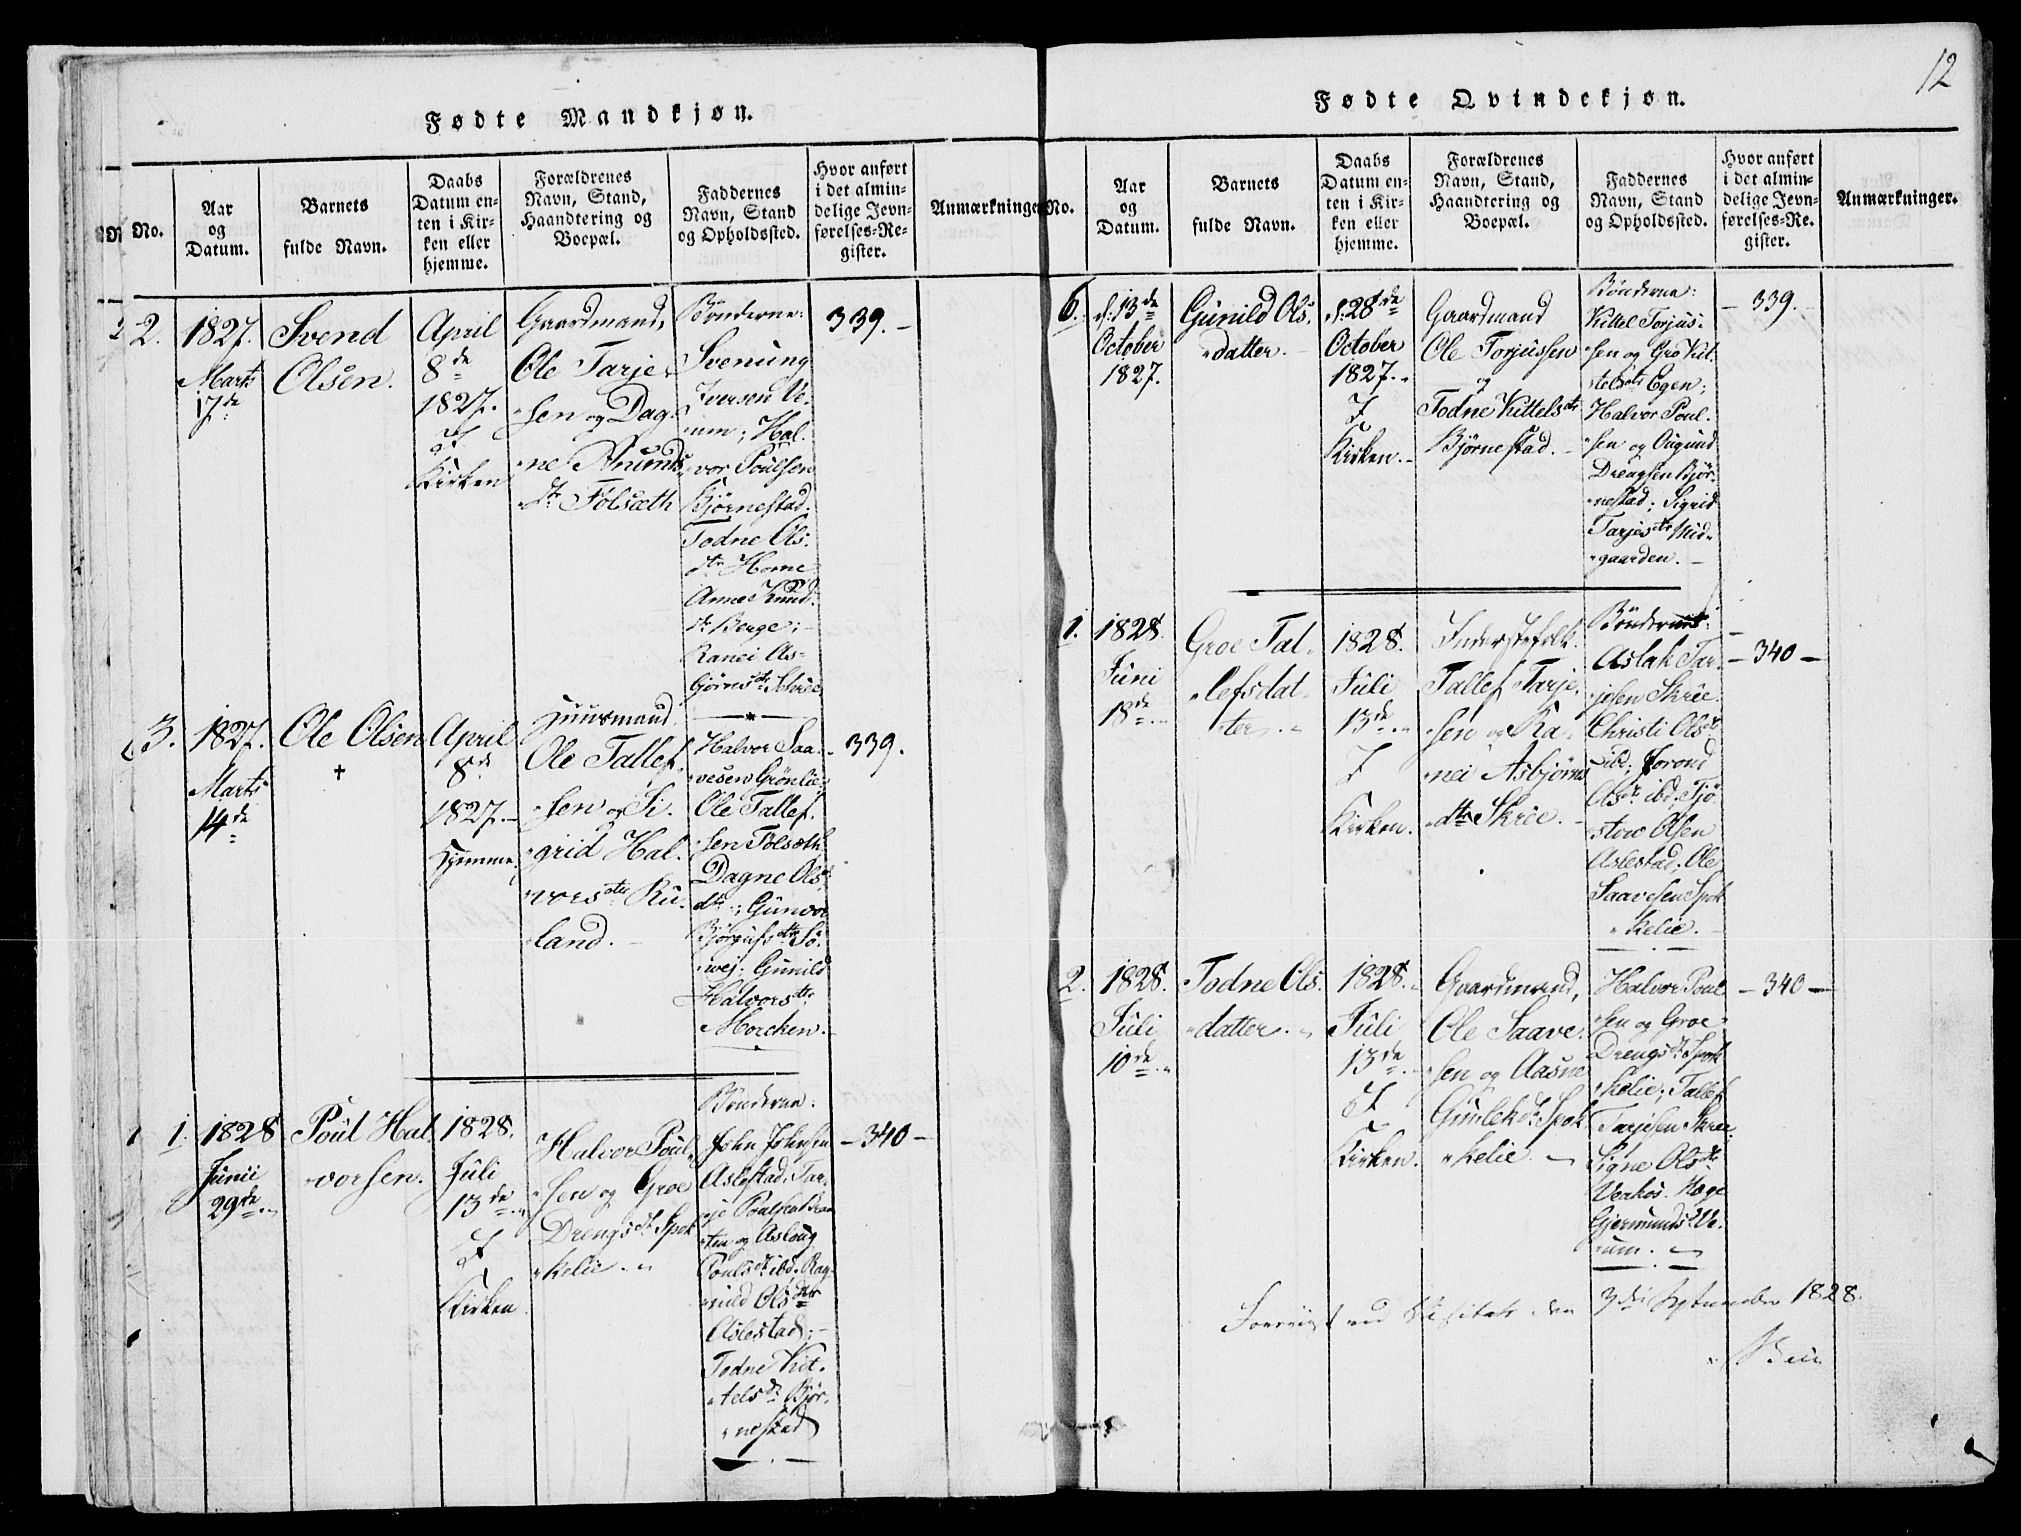 12
Fødte Mandkjøn.
No.
Aar
og
Datum.
Barnets
fulde Navn.
Daabs
Datum en-
ten i Kir-
ken eller
hjemme.
Forældrenes
Navn, Stand,
Haandtering og
Boepæl.
Faddernes
Navn, Stand
og Opholdssted.
Hvor anført
i det almin-
delige Jevn-
førelses-Re-
gister.
Anmærkninger.
2.
1827.
Marts
17de
Svend
Olsen.
April
8de
1827.
I
Kirken
Gaardmand,
Ole Tarje-
sen og Dag-
ne Anunds
dtr Folsæth
Bønderne:
Svenung
Iversen Ve-
um; Hal-
vor Poulsen
Bjørnestad.
Todne Ols-
dtr Home
Anne Knuds-
dtr Berge;
Ranei As-
bjørnsdtr Skrie
339.
3.
1827.
Marts
14de
Ole Olsen
+
April
8de
1827.
Hjemme.
Huusmand.
Ole Tallef-
sen og Si-
grid Hal-
vorsdtr Ru-
land.
Halvor Saa-
vesen Grönlie
Ole Tallef-
sen Folsæth
Dagne Ols-
dtr; Gunvor
Bjørgufsdtr Sö-
vej; Gunild
Halvorsdtr
Morcken.
339.
1.
1828
Junii
29de
Poul Hal-
vorsen.
1828.
Juli
13de
I
Kirken
Halvor Poul-
sen og Groe
Drengsdtr Spok-
kelie.
Bønderne:
John Johnsen
Aslestad, Tar-
je Poulsen
og Asloug
Poulsdtr ibd. Rag-
nild Olsdtr
Aslestad;
Todne Kit-
telsdtr Bjør-
nestad
340
Fødte Qvindekjøn.
No.
Aar
og
Datum.
Barnets
fulde Navn.
Daabs
Datum en-
ten i Kir-
ken eller
hjemme.
Forældrenes
Navn, Stand,
Haandtering og
Boepæl.
Faddernes
Navn, Stand
og Opholdssted.
Hvor anført
i det almin-
delige Jevn-
førelses-Re-
gister.
Anmærkninger.
6.
d. 13de
October
1827.
Gunild Ols-
datter.
d. 28de
October
1827.
I
Kirken.
Gaardmand
Ole Torjussen
og
Todne Kittelsdtr
Bjørnestad.
Bønderne:
Kittel Torjus-
sen og Gro Kit-
telsdtr Egen;
Halvor Poul-
sen og Ougund
Drengsen Bjør-
nestad; Sigrid
Tarjesdtr Mid-
gaarden.
339.
1.
1828.
Juni
18de
Groe Tal-
lefsdat-
ter.
1828.
Juli
13de
I
Kirken.
Inderstefolk.
Tallef Tarje-
sen og Ra-
nei Asbjørns
dtr Skrie.
Bønderne:
Aslak Tar-
jesen Skrie.
Christi Olsdtr
ibd; Jorond
Olsdtr ibd. Tjö-
stow Olsen
Aslestad; Ole
Saavesen Spok-
kelie.
340
2.
1828.
Juli
10de
Todne Ols-
datter.
1828.
Juli
13de
I
Kirken.
Gaardmand,
Ole Saave-
sen og Aasne
Gunlekdtr Spok-
kelie.
Halvor Poul-
sen og Groe
Drengsdtr Spok-
kelie; Tallef
Tarjesen Skrie;
Signe Olsdtr
Verkos. Hæge
Gjermundsdtr Ve-
um.
340
Foreviist ved Visitats den 3die Septembr 1828.